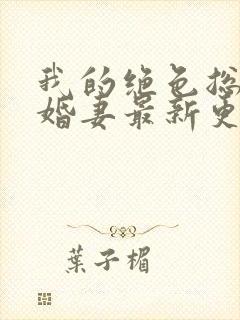 我的绝色总
婚妻最新更
葉子楣